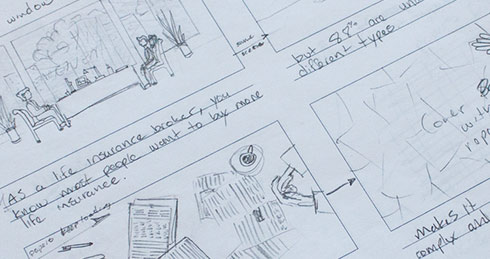 window
but 88% are un
different types
As a life insurance broker, you
know most people want to buy more
life insurance.
Cover
with
pape
makes it
complex and